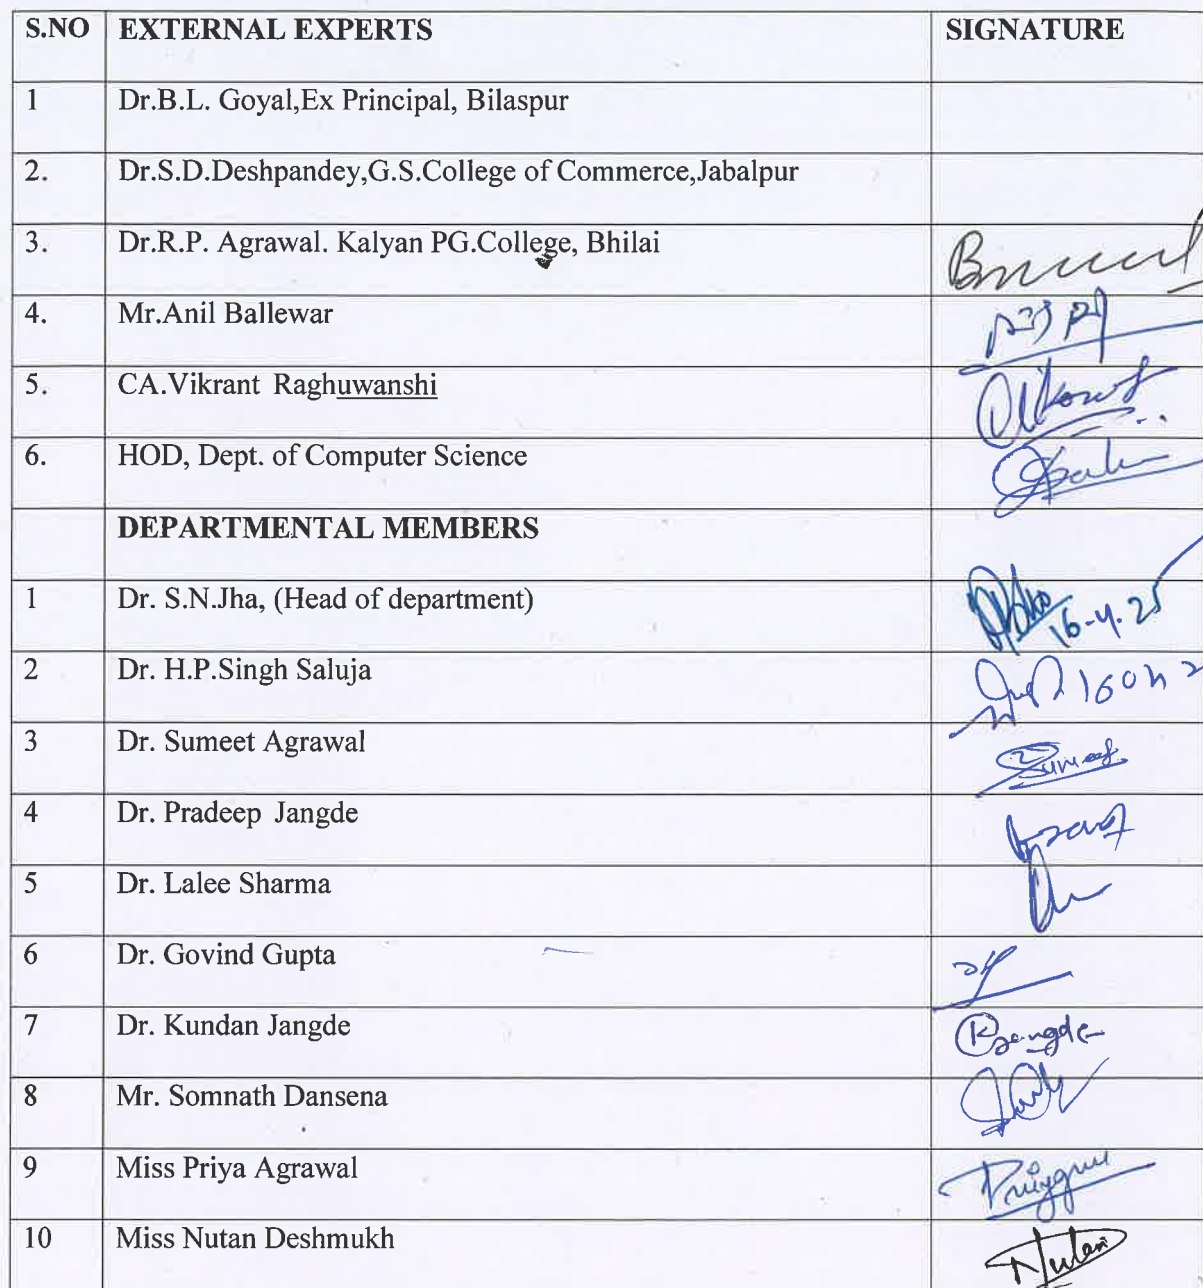 S.NO EXTERNAL EXPERTS SIGNATURE
1 Dr.B.L. Goyal,Ex Principal, Bilaspur
2. Dr.S.D.Deshpandey,G.S.College of Commerce,Jabalpur
3. Dr.R.P. Agrawal. Kalyan PG.College, Bhilai
4. Mr.Anil Ballewar
5. CA.Vikrant Raghuwanshi
6. HOD, Dept. of Computer Science
DEPARTMENTAL MEMBERS
1 Dr. S.N.Jha, (Head of department) 16-4.25
2 Dr. H.P.Singh Saluja
3 Dr. Sumeet Agrawal Sumeet
4 Dr. Pradeep Jangde
5 Dr. Lalee Sharma
6 Dr. Govind Gupta
7 Dr. Kundan Jangde KJangde
8 Mr. Somnath Dansena
9 Miss Priya Agrawal
10 Miss Nutan Deshmukh Nutan